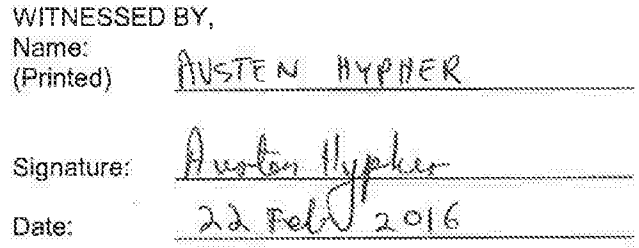 WITNESSED BY,
Name:
(Printed) AUSTEN HYPHER
Signature: Austen Hypher
Date: 22 Feb 2016